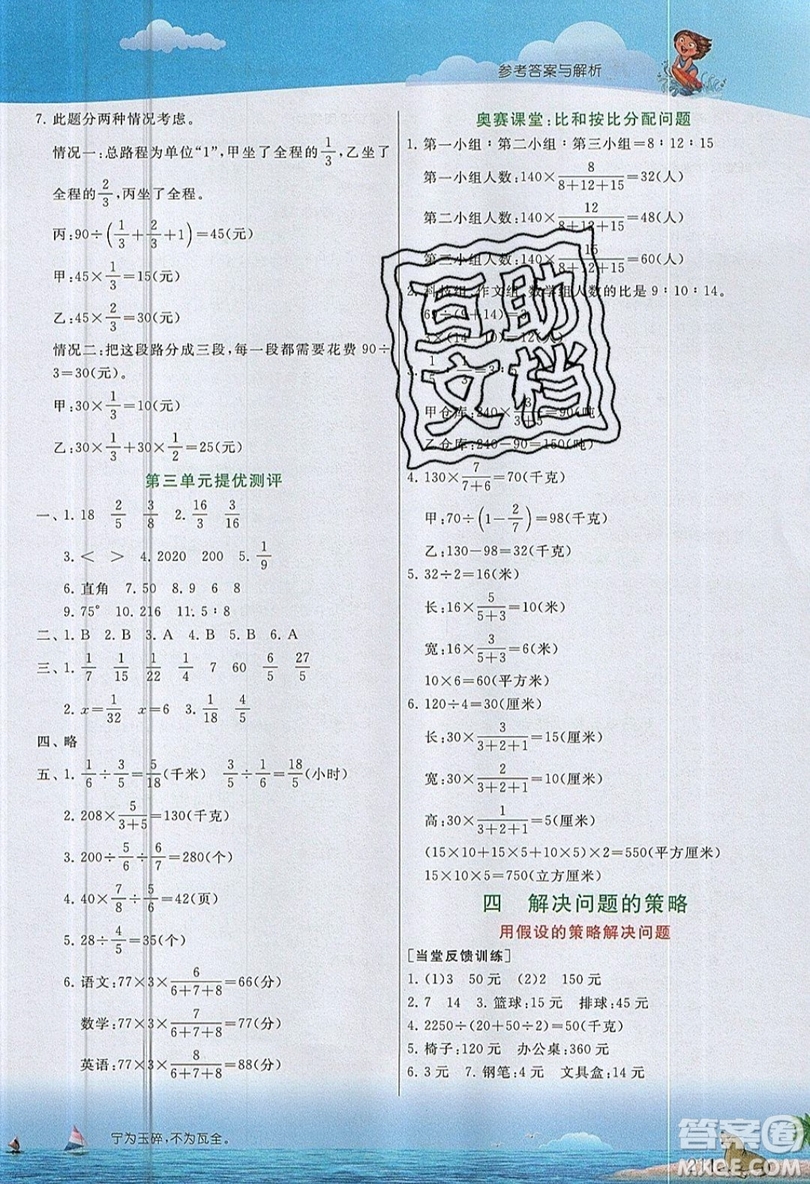 参考答案与解析
7. 此题分两种情况考虑。
情况一：总路程为单位“1”，甲坐了全程的1/3，乙坐了
全程的2/3，丙坐了全程。
丙：90÷(1/3+2/3+1)=45(元)
甲：45×1/3=15(元)
乙：45×2/3=30(元)
情况二：把这段路分成三段，每一段都需要花费 90÷
3=30(元)。
甲：30×1/3=10(元)
乙：30×1/3+30×1/2=25(元)
第三单元提优测评
一、1. 18 2/5 3/8 2. 16/3 3/16
3. < > 4. 2020 200 5. 1/9
6. 直角 7. 50 8. 9 6 8
9. 75° 10. 216 11. 5∶8
二、1. B 2. B 3. A 4. B 5. B 6. A
三、1. 1/7 7/15 2/15 1/4 7 60 6/5 27/5
2. x=1/32 x=6 3. 1/18 4/5
四、略
五、1. 1/6÷3/5=5/18(千米) 3/5÷1/6=18/5(小时)
2. 208×5/(3+5)=130(千克)
3. 200÷5/6÷6/7=280(个)
4. 40×7/8÷5/6=42(页)
5. 28÷4/5=35(个)
6. 语文：77×3×6/(6+7+8)=66(分)
数学：77×3×7/(6+7+8)=77(分)
英语：77×3×8/(6+7+8)=88(分)
奥赛课堂：比和按比分配问题
1. 第一小组∶第二小组∶第三小组=8∶12∶15
第一小组人数：140×8/(8+12+15)=32(人)
第二小组人数：140×12/(8+12+15)=48(人)
第三小组人数：140×15/(8+12+15)=60(人)
2. 科技组、作文组、数学组人数的比是 9∶10∶14。
69÷(9+14)=3
互助
文档
甲仓库：240×3/(3+5)=90(吨)
乙仓库：240-90=150(吨)
4. 130×7/(7+6)=70(千克)
甲：70÷(1-2/7)=98(千克)
乙：130-98=32(千克)
5. 32÷2=16(米)
长：16×5/(5+3)=10(米)
宽：16×3/(5+3)=6(米)
10×6=60(平方米)
6. 120÷4=30(厘米)
长：30×3/(3+2+1)=15(厘米)
宽：30×2/(3+2+1)=10(厘米)
高：30×1/(3+2+1)=5(厘米)
(15×10+15×5+10×5)×2=550(平方厘米)
15×10×5=750(立方厘米)
四 解决问题的策略
用假设的策略解决问题
[当堂反馈训练]
1. (1)3 50 元 (2)2 150 元
2. 7 14 3. 篮球：15 元 排球：45 元
4. 2250÷(20+50÷2)=50(千克)
5. 椅子：120 元 办公桌：360 元
6. 3 元 7. 钢笔：4 元 文具盒：14 元
宁为玉碎，不为瓦全。
答案圈